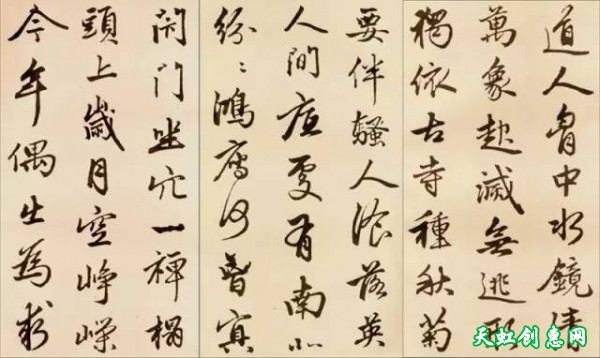 道人胷中水鏡清
萬象起滅無逃形
獨依古寺種秋菊
要伴騷人飡落英
人間底處有南北
紛〻鴻雁何曾冥
閉門坐穴一禪榻
頭上歲月空崢嶸
今年偶出為求
天虹创惠网